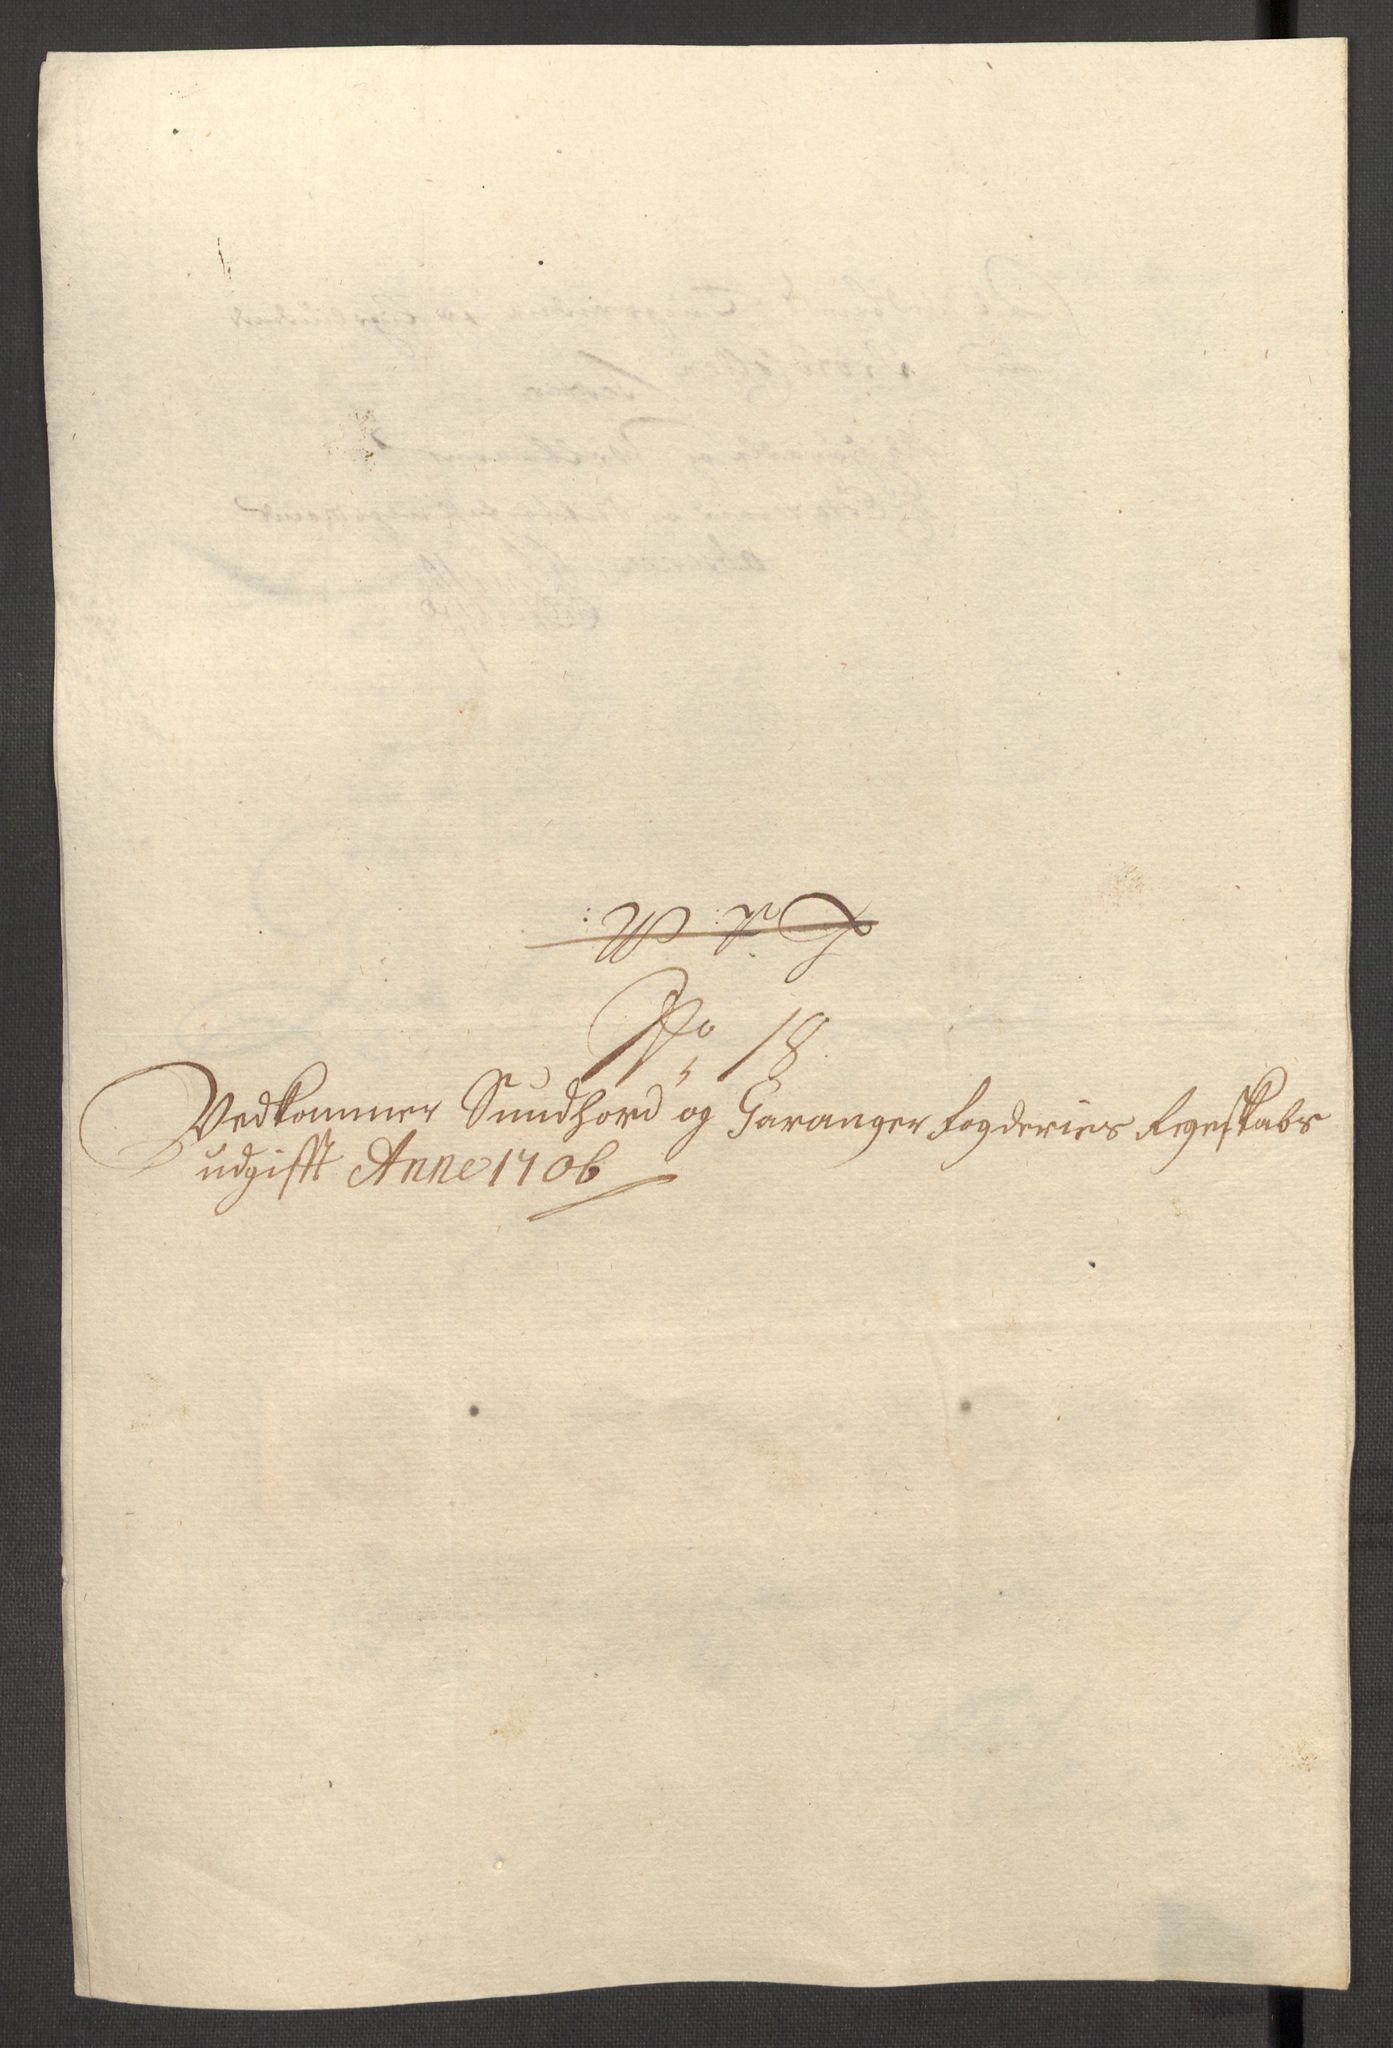 No 18
Vedkommer Sundhord og Haranger fogderies Regeskabs
udgifft Anno 1706